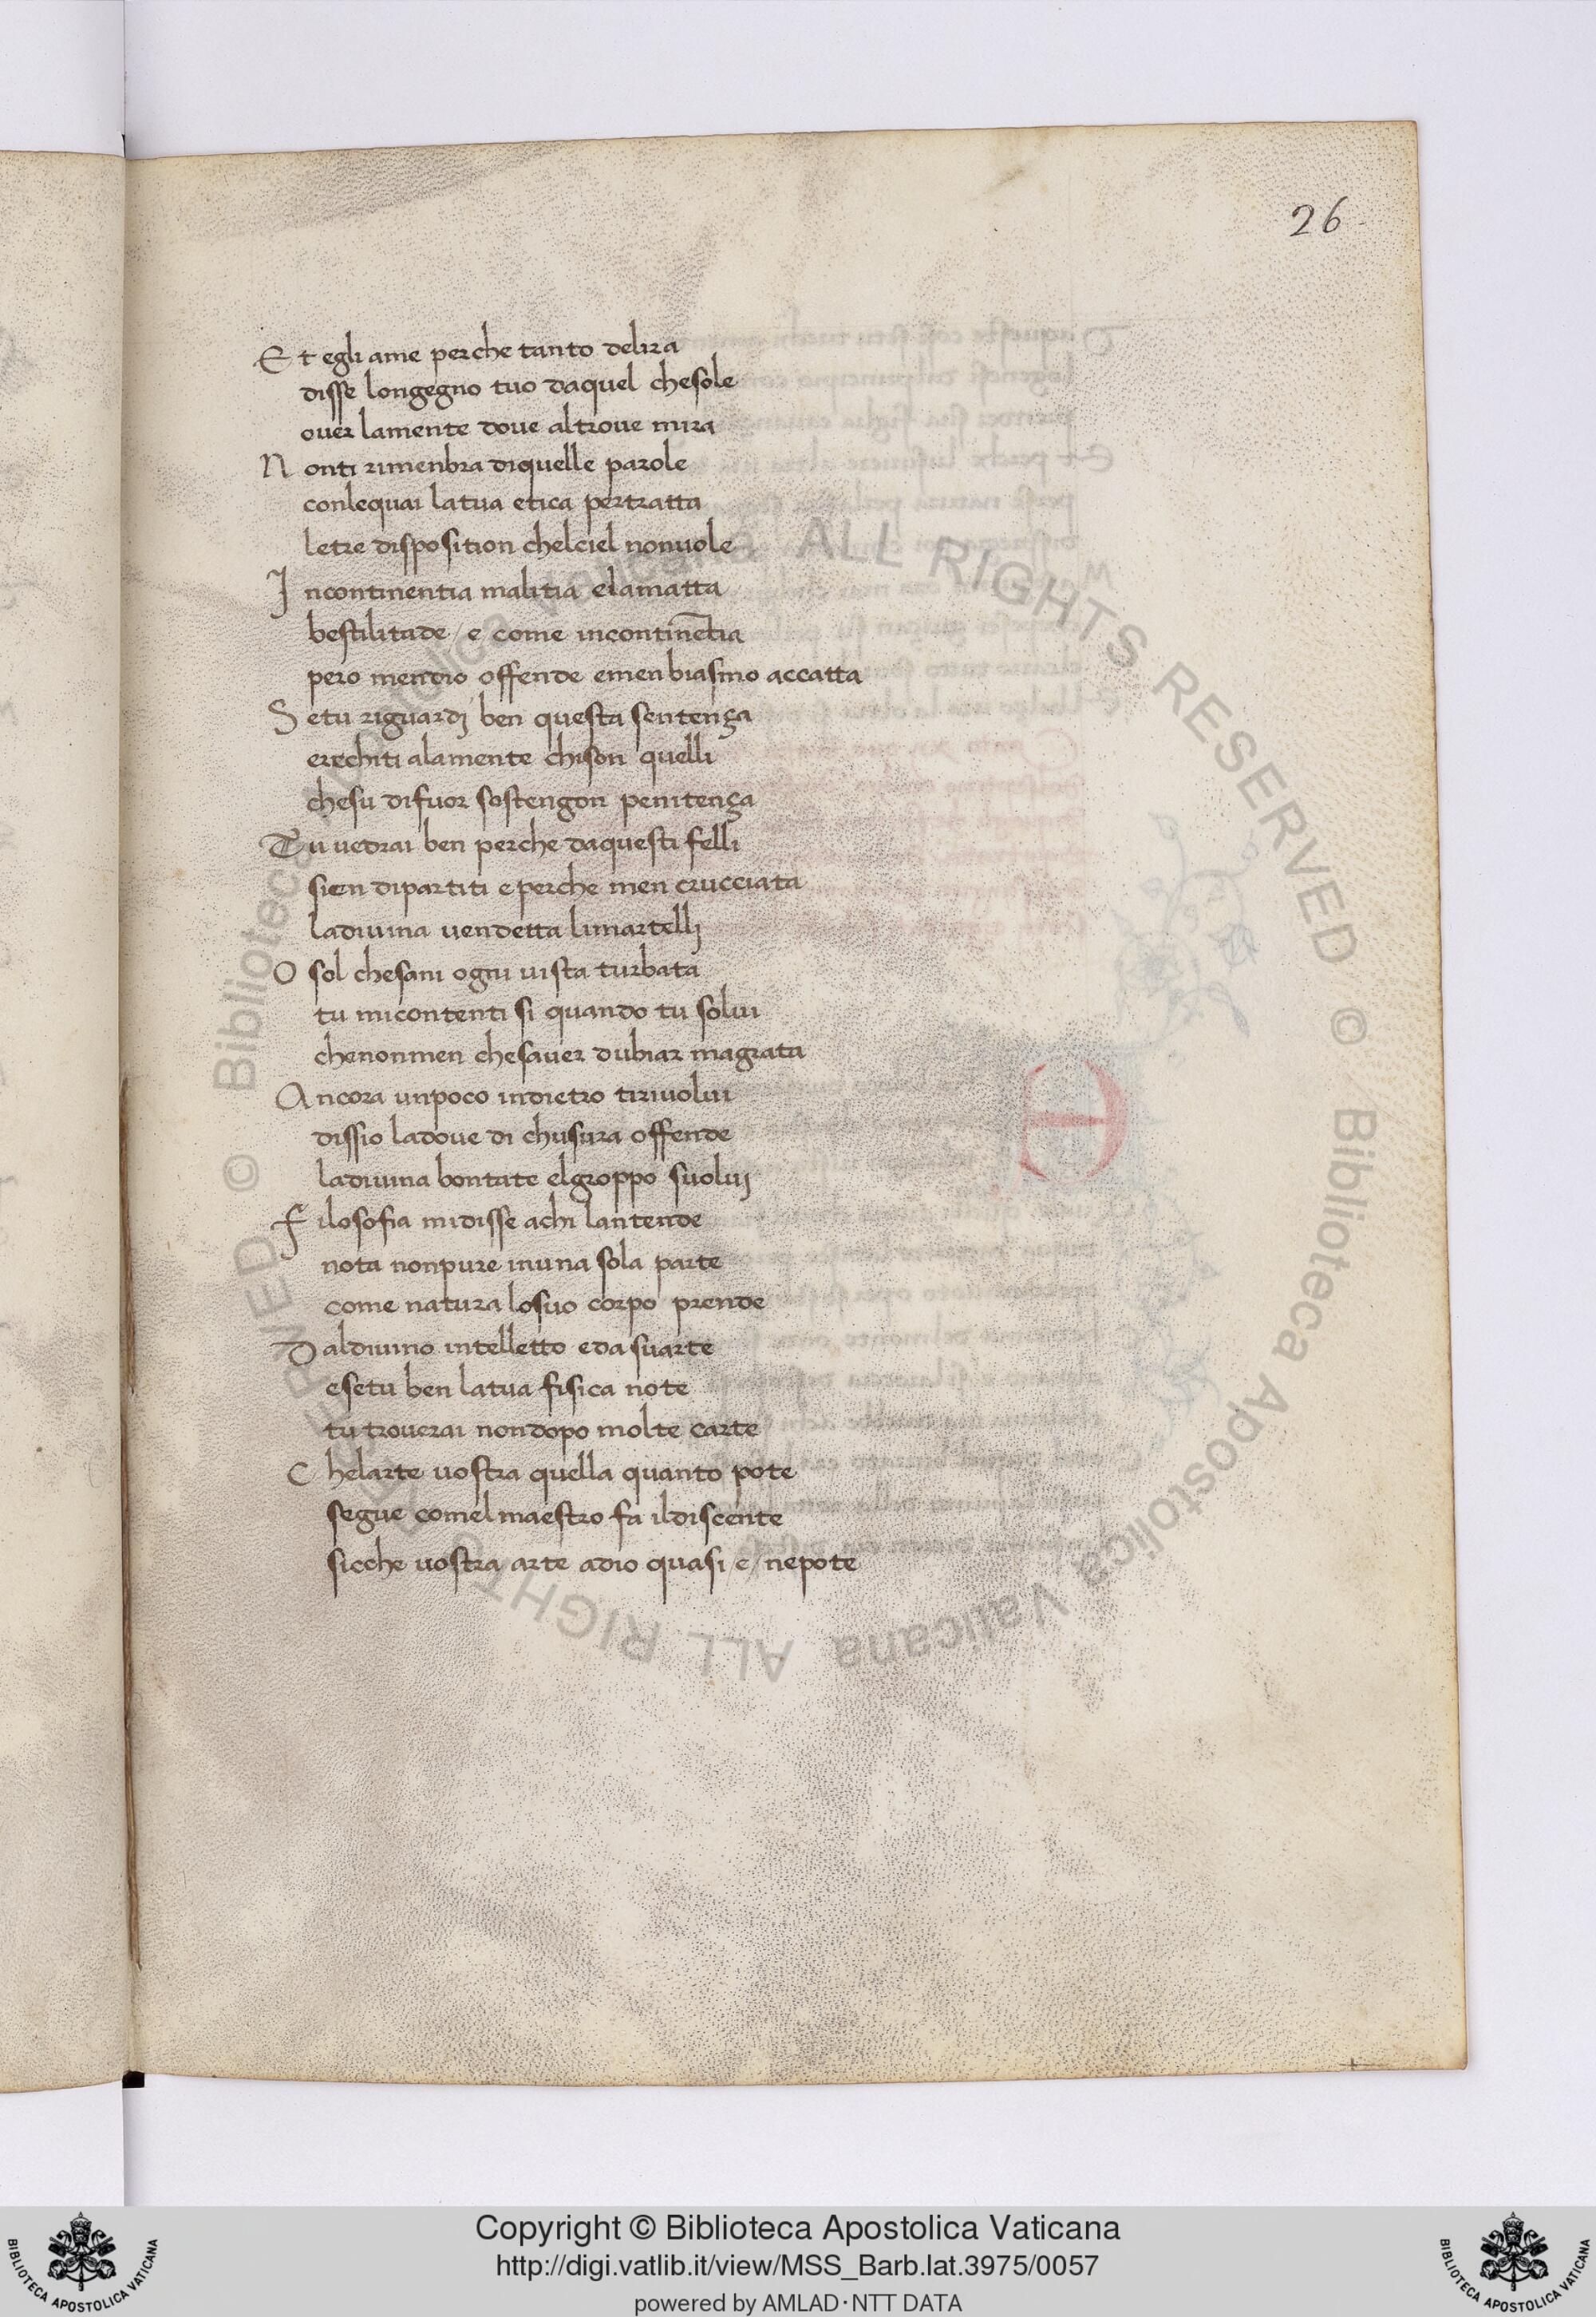 26
Et egli ame perche tanto delira
disse longegno tuo daquel chesole
over lamente dove altrove mira
Nonti rimenbra diquelle parole
conlequai latua etica pertratta
letre disposition chelciel nonvole
Incontinentia malitia elamatta
bestilitade / e come incontinētia
pero mendio offende emenbiasmo accatta
Setu riguardj ben questa sentença
erechiti alamente chison quelli
chesu difuor sostengon penitença
Tu vedrai ben perche daquesti felli
sien dipartiti e perche men crucciata
ladivina vendetta limartellj
O sol chesani ogni vista turbata
tu micontenti si quando tu solvi
chenonmen chesaver dubiar magrata
Ancora unpoco indietro tirivolvi
dissio ladove di chusura offende
ladivina bontate elgroppo svolvj
Filosofia midisse achi lantende
nota nonpure inuna sola parte
come natura losuo corpo prende
Daldivino intelletto eda suarte
esetu ben latua fisica note
tu troverai nondopo molte carte
Chelarte vostra quella quanto pote
segue comel maestro fa ildiscente
sicche vostra arte adio quasi / e / nepote
© Biblioteca Apostolica Vaticana ALL RIGHTS RESERVED © Biblioteca Apostolica Vaticana ALL RIGHTS RESERVED
Copyright © Biblioteca Apostolica Vaticana
http://digi.vatlib.it/view/MSS_Barb.lat.3975/0057
powered by AMLAD·NTT DATA
BIBLIOTECA APOSTOLICA VATICANA
BIBLIOTECA APOSTOLICA VATICANA